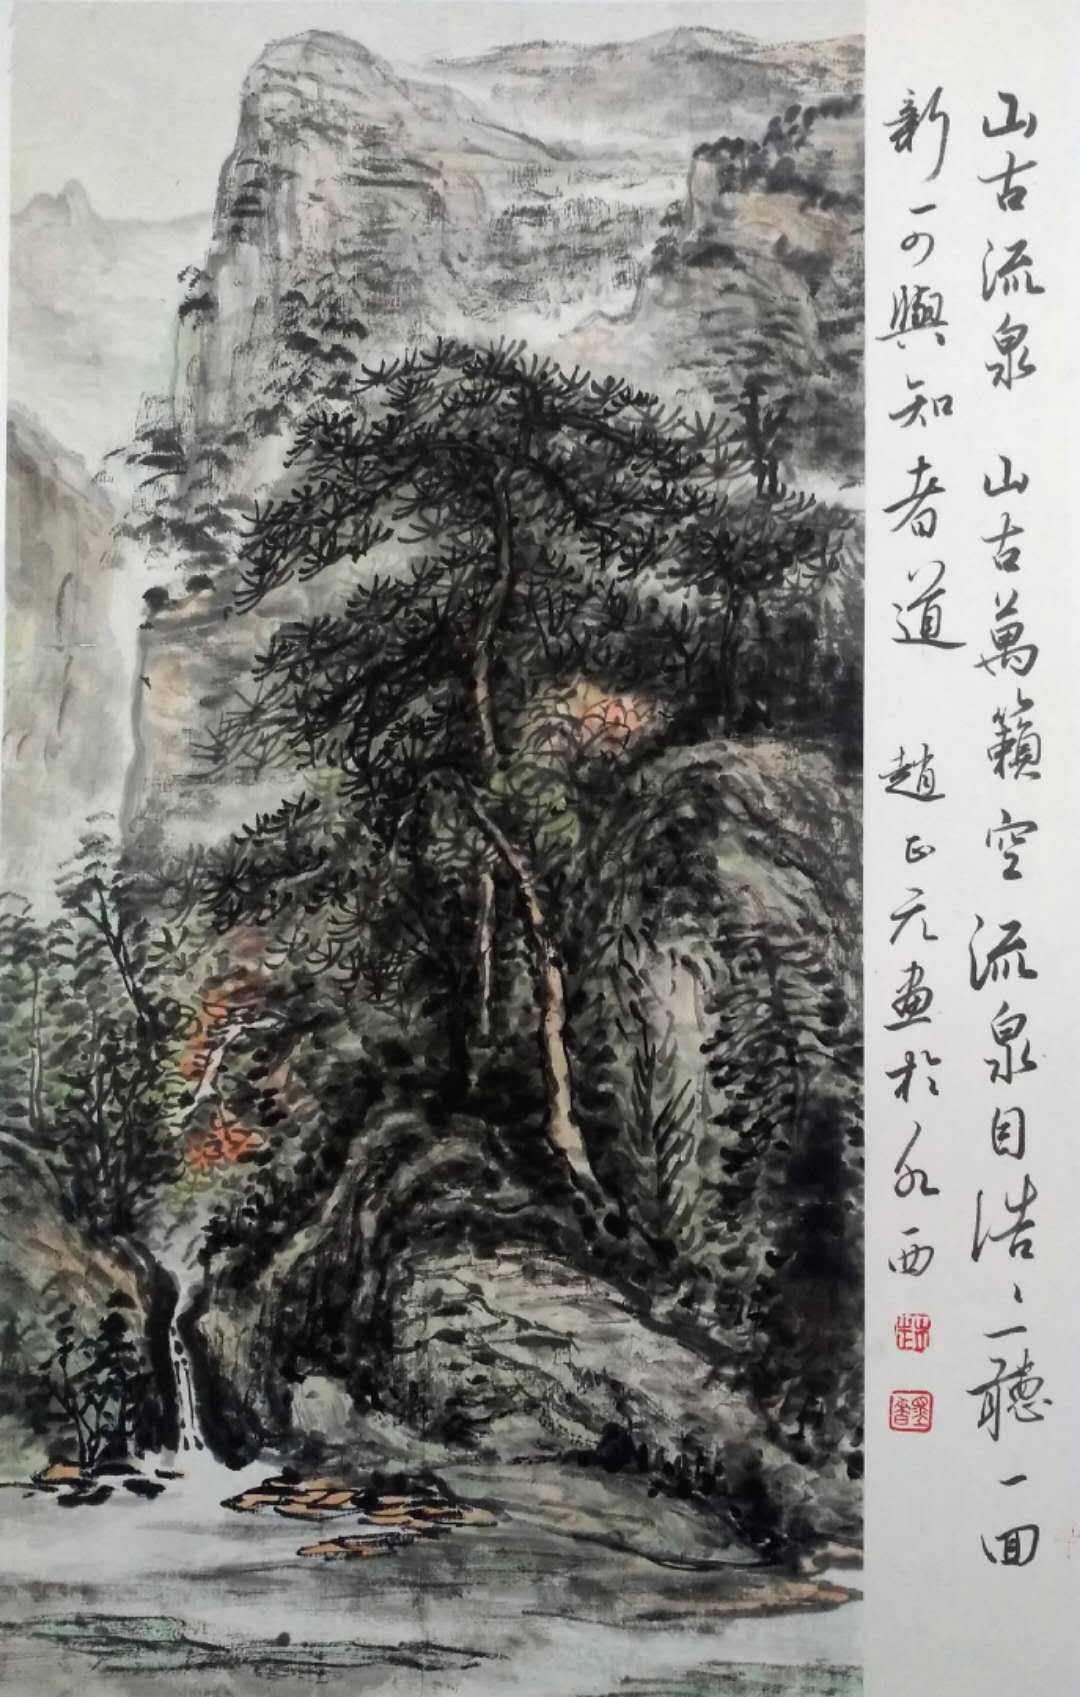 山古流泉 山古萬籟空流泉目浩〻一聽一回
新一可與知者道 趙正元畫於水西